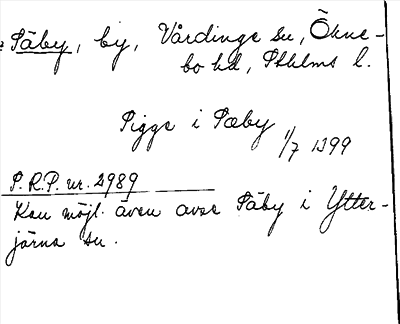 Säby, by, Vårdinge sn, Ökne-
bo hd, Sthlms l.
Sigge i Sæby 1/7 1399
S.R.P. nr. 2989
Kan möjl. även avse Säby i Ytter-
järna sn.